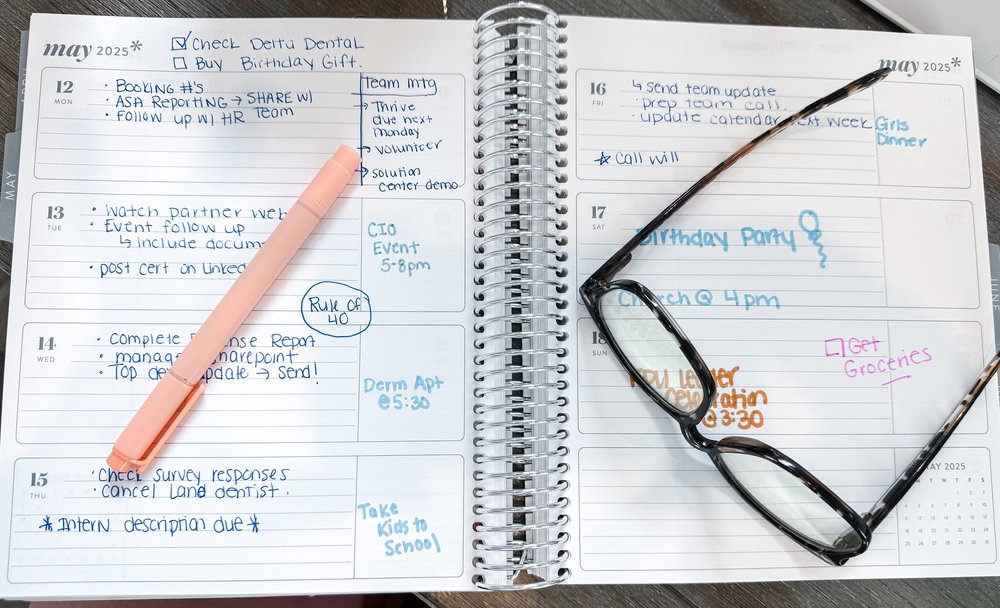 may 2025*
☑ Check Delta Dental
☐ Buy Birthday Gift.
12
MON
• Booking #'s
• ASA Reporting → SHARE W/
• Follow up w/ HR Team
Team mtg
→ Thrive
due next
monday
→ volunteer
→ solution
center demo
13
TUE
• Watch partner
• Event follow up
↳ include
• post cert on
CIO
Event
5-8pm
Rule of
40
14
WED
• Complete Report
•
• TOP update → Send!
Derm Apt
@ 5:30
15
THU
• Check survey responses
• Cancel Land dentist.
* Intern description due *
Take
Kids to
School
MAY
may 2025*
16
FRI
↳ send team update
• prep team call.
• update calendar next week
☆ Call Will
Girls
Dinner
17
SAT
Birthday Party
Church @ 4pm
18
SUN
☐ Get
Groceries
@ 3:30
MAY 2025